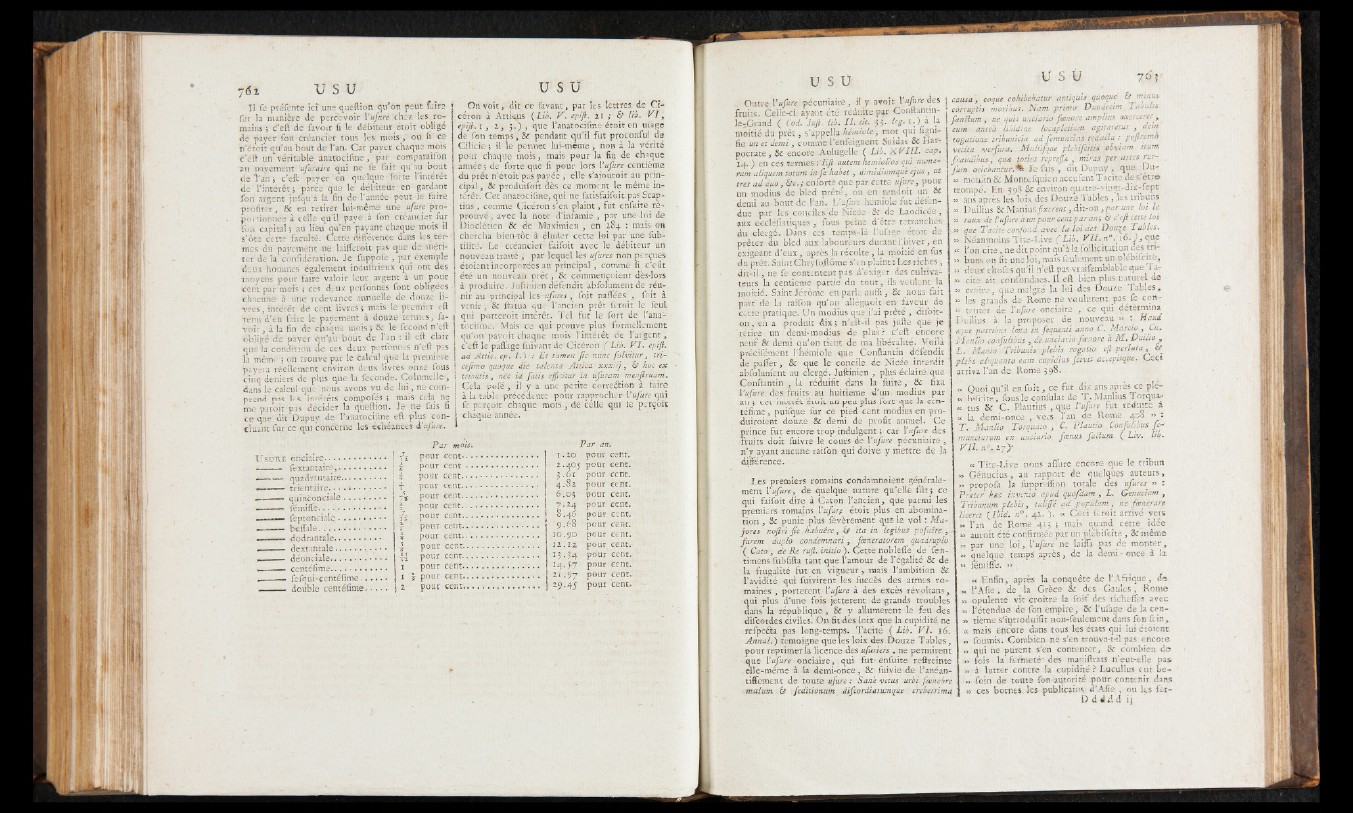 762 USU USU
Il se présente ici une question qu'on peut faire
sur la manière de percevoir l'usure chez les ro-
mains ; c'est de savoir si le débiteur étoit obligé
de payer son créancier tous les mois, ou si ce
n'étoit qu'au bout de l'an. Car payer chaque mois
c'est un véritable anatocisme, par comparaison
au payement usuraire qui ne se fait qu'au bout
de l'an ; c'est payer en quelque sorte l'intérêt
de l'intérêt ; parce que le débiteur en gardant
son argent jusqu'à la fin de l'année peut le faire
profiter, & en retirer lui-même une usure pro-
portionnée à celle qu'il paye à son créancier sur
son capital ; au lieu qu'en payant chaque mois il
s'ôte cette faculté. Cette différence dans les ter-
mes du payement ne laisseroit pas que de méri-
ter de la considération. Je suppose, par exemple
deux hommes également industrieux qui ont des
moyens pour faire valoir leur argent à un pour
cent par mois ; ces deux personnes sont obligées
chacune à une redevance annuelle de douze li-
vres, intérêt de cent livres ; mais le premier est
tenu d'en faire le payement à douze termes, sa-
voir, à la fin de chaque mois ; & le second n'est
obligé de payer qu'au bout de l'an : il est clair
que la condition de ces deux personnes n'est pas
la même ; on trouve par le calcul que la première
payera réellement environ deux livres onze sous
cinq deniers de plus que la seconde. Colomelle,
dans le calcul que nous avons vu de lui, ne com-
prend pas les intérêts composés ; mais cela ne
me paroît pas décider la question. Je ne sais si
ce que dit Dupuy de l'anatocisme est plus con-
cluant sur ce qui concerne les échéances d'usure.
On voit, dit ce savant, par les lettres de Ci-
céron à Attiqus ( Lib. V. epist. 21 ; & lib. VI,
epist. 1, 2, 3. ), que l'anatocisme étoit en usage
de son temps, & pendant qu'il fut proconsul de
Cilicie ; il le permet lui-même, non à la vérité
pour chaque mois, mais pour la fin de chaque
années de sorte que si pour lors l'usure centième
du prêt n'étoit pas payée, elle s'ajoutoit au prin-
cipal, & produisoit dès ce moment le même in-
térêt. Cet anatocisme, qui ne satisfaisoit pas Scap-
tius, comme Cicéron s'en plaint, fut ensuite ré-
prouvé, avec la note d'infamie, par une loi de
Dioclétien & de Maximien, en 284 : mais on
chercha bien-tôt à éluder cette loi par une sub-
tilité. Le créancier faisoit avec le débiteur un
nouveau traité, par lequel les usures non perçues
étoient incorporées au principal, comme si c'eût
été un nouveau prêt, & commençoient dès-lors
à produire. Justinien défendit absolument de réu-
nir au principal les usures, soit passées, soit à
venir, & statua que l'ancien prêt seroit le seul
qui porteroit intérêt. Tel fut le sort de l'ana-
tocisme. Mais ce qui prouve plus formellement
qu'on payoit chaque mois l'intérêt de l'argent,
c'est le passage suivant de Cicéron ( Lib. VI. epist.
ad Attic. ep. 1. ) : Et tamen sic nunc solvitur, tri-
cesimo quoque die talenta Attica xxxiij, & hoc ex
tributis, nec id satis efficitur in usuram menstruam.
Cela posé, il y a une petite correction à faire
à la table précédente pour rapprocher l'usure qui
se perçoit chaque mois, de celle qui se perçoit
chaque année.
Par mois. Par an.
USURE onciaire 1/12 pour cent 1.20 pour cent.
sextantaire pour cent 2.405 pour cent.
quadrantaire pour cent 3.61 pour cent.
trientaire pour cent 4.82 pour cent.
quinconciale pour cent 6.04 pour cent.
semisse pour cent 7.24 pour cent.
septonciale pour cent 8.46 pour cent.
bessale pour cent 9.68 pour cent.
dodrantale pour cent 10.90 pour cent.
dextantale pour cent 12.12 pour cent.
déonciale pour cent 13.34 pour cent.
centésime 1 pour cent 14.57 pour cent.
sesqui-centésime 1 ½ pour cent 21.57 pour cent.
double centésime 2 pour cent 29.45 pour cent.
USU USU 763
Outre l'usure pécuniaire, il y avoit l'usure des
fruits. Celle-ci ayant été réduite par Constantin-
le-Grand ( Cod. Just. lib. II. tit. 33. leg. 1. ) à la
moitié du prêt, s'appella hémiole, mot qui signi-
fie un et demi, comme l'enseignent Suidas & Har-
pocrate, & encore Aulugelle ( Lib. XVIII. cap.
14. ) en ces termes : Est autem hemiolios qui nume-
rum aliquem totum in se habet, dimidiumque ejus, ut
tres ad duo, &c. ; ensorte que par cette usure, pour
un modius de bled prêté, on en rendoit un &
demi au bout de l'an. L'usure hémiole fut défen-
due par les conciles de Nicée & de Laodicée,
aux ecclésiastiques, sous peine d'être retranchés
du clergé. Dans ces temps-là l'usage étoit de
prêter du bled aux laboureurs durant l'hiver, en
exigeant d'eux, après la récolte, la moitié en sus
du prêt. Saint Chrysostôme s'en plaint : Les riches,
dit-il, ne se contentent pas d'exiger des cultiva-
teurs la centième partie du tout, ils veulent la
moitié. Saint Jérôme en parle aussi, & nous fait
part de la raison qu'on alléguoit en faveur de
cette pratique. Un modius que j'ai prêté, disoit-
on, en a produit dix ; n'est-il pas juste que je
retire un demi-modius de plus ? c'est encore
neuf & demi qu'on tient de ma libéralité. Voilà
précisément l'hémiole que Constantin défendit
de passer, & que le concile de Nicée interdit
absolument au clergé. Justinien, plus éclairé que
Constantin, la réduisit dans la suite, & fixa
l'usure des fruits au huitième d'un modius par
an ; cet intérêt étoit un peu plus fort que la cen-
tésime, puisque sur ce pied cent modius en pro-
duiroient douze & demi de profit annuel. Ce
prince fut encore trop indulgent ; car l'usure des
fruits doit suivre le cours de l'usure pécuniaire,
n'y ayant aucune raison qui doive y mettre de la
différence.
Les premiers romains condamnoient générale-
ment l'usure, de quelque nature qu'elle fût ; ce
qui faisoit dire à Caton l'ancien, que parmi les
premiers romains l'usure étoit plus en abomina-
tion, & punie plus sévèrement que le vol : Ma-
jores nostri sic habuêre, & ita in legibus posuêre,
furem duplo condemnari, fœneratorem quadruplo
( Cato, de Re rust. initio ). Cette noblesse de sen-
timens subsista tant que l'amour de l'égalité & de
la frugalité fut en vigueur, mais l'ambition &
l'avidité qui suivirent les succès des armes ro-
maines, porterent l'usure à des excès révoltans,
qui plus d'une fois jetterent de grands troubles
dans la république, & y allumerent le feu des
discordes civiles. On fit des loix que la cupidité ne
respecta pas long-temps. Tacite ( Lib. VI. 16.
Annal. ) témoigne que les loix des Douze Tables,
pour reprimer la licence des usuriers, ne permirent
que l'usure onciaire, qui fut ensuite restreinte
elle-même à la demi-once, & suivie de l'anéan-
tissement de toute usure : Sanè vetus urbi fœnebre
malum & seditionum discordiarumque creberrima
causa, eoque cohibebatur antiquis quoque & minus
corruptis moribus. Nam primo Duodecim Tabulis
sanctum, ne quis unciario fœnore amplius exerceret,
cum anteà ex libidine locupletium agitaretur, dein
rogatione tribunitia ad semuncias redacta : postremò
vetita versura. Multisque plebiscitis obviàm itum
fraudibus, quæ toties repressæ, miras per artes rur-
sum oriebantur. « Je sais, dit Dupuy, que Du-
» moulin & Montesquieu accusent Tacite de s'être
» trompé. En 398 & environ quatre-vingt-dix-sept
» ans après les loix des Douze Tables, les tribuns
» Duilius & Manius fixerent, dit-on, par une loi le
» taux de l'usure à un pour cent par an ; & c'est cette loi
» que Tacite confond avec la loi des Douze Tables.
» Néanmoins Tite-Live ( Lib. VII. n°. 16. ), que
» l'on cite, ne dit point qu'à la sollicitation des tri-
» buns on fit une loi, mais seulement un plébiscite,
» deux choses qu'il n'est pas vraisemblable que Ta-
» cite ait confondues. Il est bien plus naturel de
» croire, que malgré la loi des Douze Tables,
» les grands de Rome ne voulurent pas se con-
» tenter de l'usure onciaire, ce qui détermina
» Duilius à la proposer de nouveau » : Haud
æque patribus læta in sequenti anno C. Marcio, Cn.
Manlio consulibus, de unciario fœnore à M. Duilio,
L. Manio Tribunis plebis rogatio est perlata, &
plebs aliquanto eam cupidius scivit accepitque. Ceci
arriva l'an de Rome 398.
» Quoi qu'il en soit, ce fut dix ans après ce plé-
» biscite, sous le consulat de T. Manlius Torqua-
» tus & C. Plautius, que l'usure fut réduite à
» la demi-once, vers l'an de Rome 408 » :
T. Manlio Torquato, C. Plautio Consulibus se-
munciarum ex unciario fœnus factum ( Liv. lib.
VII. n°. 27 )
« Tite-Live nous assure encore que le tribun
» Génucius, au rapport de quelques auteurs,
» proposa la suppression totale des usures » :
Præter hæc invenio apud quosdam, L. Genucium,
Tribunum plebis, tulisse ad populum, ne fœnerare
liceret ( Ibid. n°. 42. ). « Ceci seroit arrivé vers
» l'an de Rome 413 ; mais quand cette idée
» auroit été confirmée par un plébiscite, & même
» par une loi, l'usure ne laissa pas de monter,
» quelque temps après, de la demi-once à la
» sémisse. »
« Enfin, après la conquête de l'Afrique, de
» l'Asie, de la Grèce & des Gaules, Rome
» opulente vît croître la soif des richesses avec
» l'étendue de son empire, & l'usage de la cen-
» tième s'introduisit non-seulement dans son sein,
» mais encore dans tous les états qui lui étoient
» soumis. Combien ne s'en trouva-t-il pas encore
» qui ne purent s'en contenter, & combien de
» fois la fermeté des magistrats n'eut-elle pas
» à lutter contre la cupidité ? Lucullus eut be-
» soin de toute son autorité pour contenir dans
» ces bornes les publicains d'Asie, où les fer-
D d d d d ij